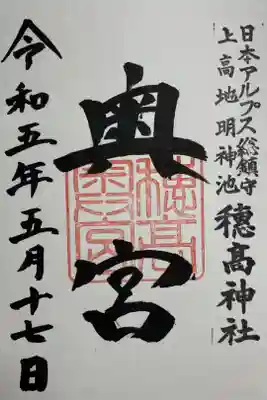 日本アルプス総鎮守
上高地明神池
穂髙神社
奥宮
令和五年五月十七日